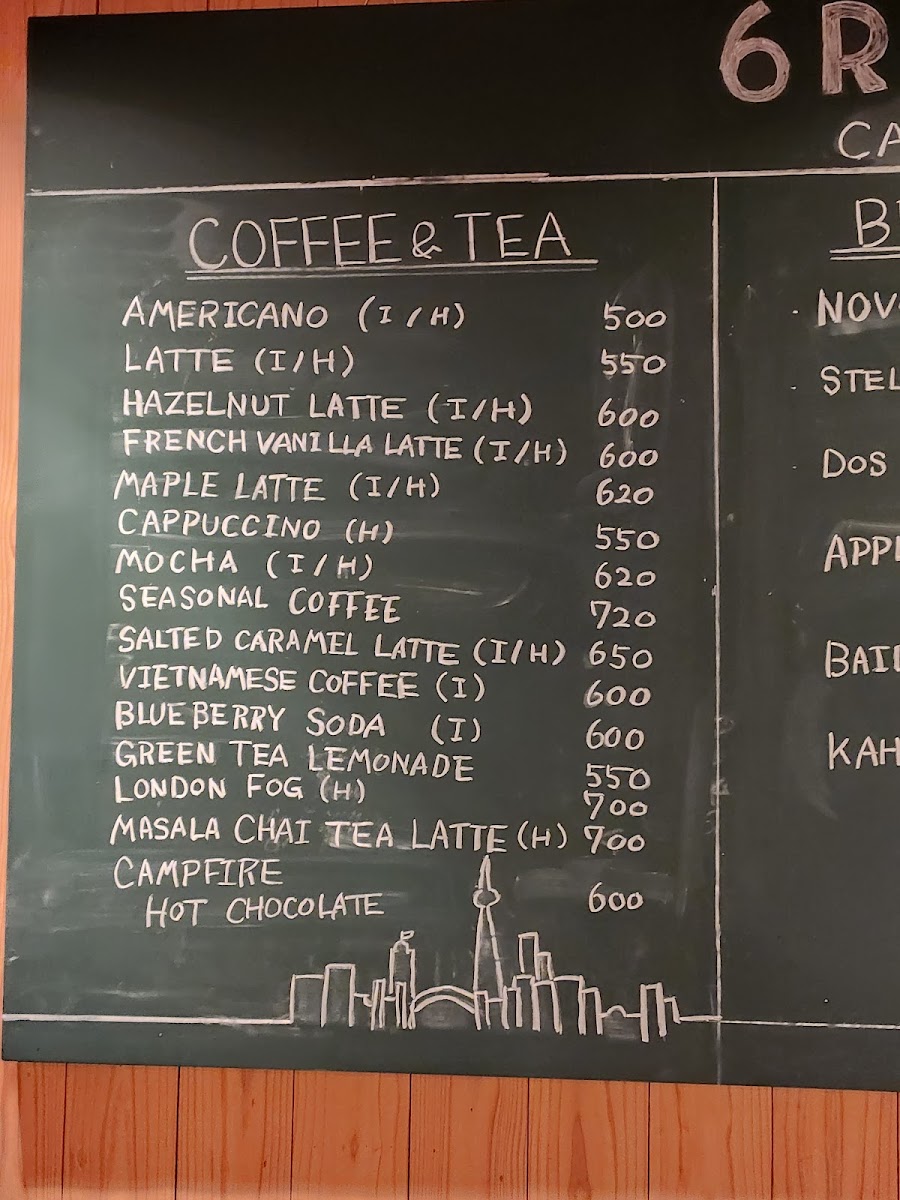 6 R
CA
COFFEE & TEA
AMERICANO (I/H) 500
LATTE (I/H) 550
HAZELNUT LATTE (I/H) 600
FRENCH VANILLA LATTE (I/H) 600
MAPLE LATTE (I/H) 620
CAPPUCCINO (H) 550
MOCHA (I/H) 620
SEASONAL COFFEE 720
SALTED CARAMEL LATTE (I/H) 650
VIETNAMESE COFFEE (I) 600
BLUEBERRY SODA (I) 600
GREEN TEA LEMONADE 550
LONDON FOG (H) 700
MASALA CHAI TEA LATTE (H) 700
CAMPFIRE
HOT CHOCOLATE 600
NOV
STEL
DOS
APP
BAI
KAH